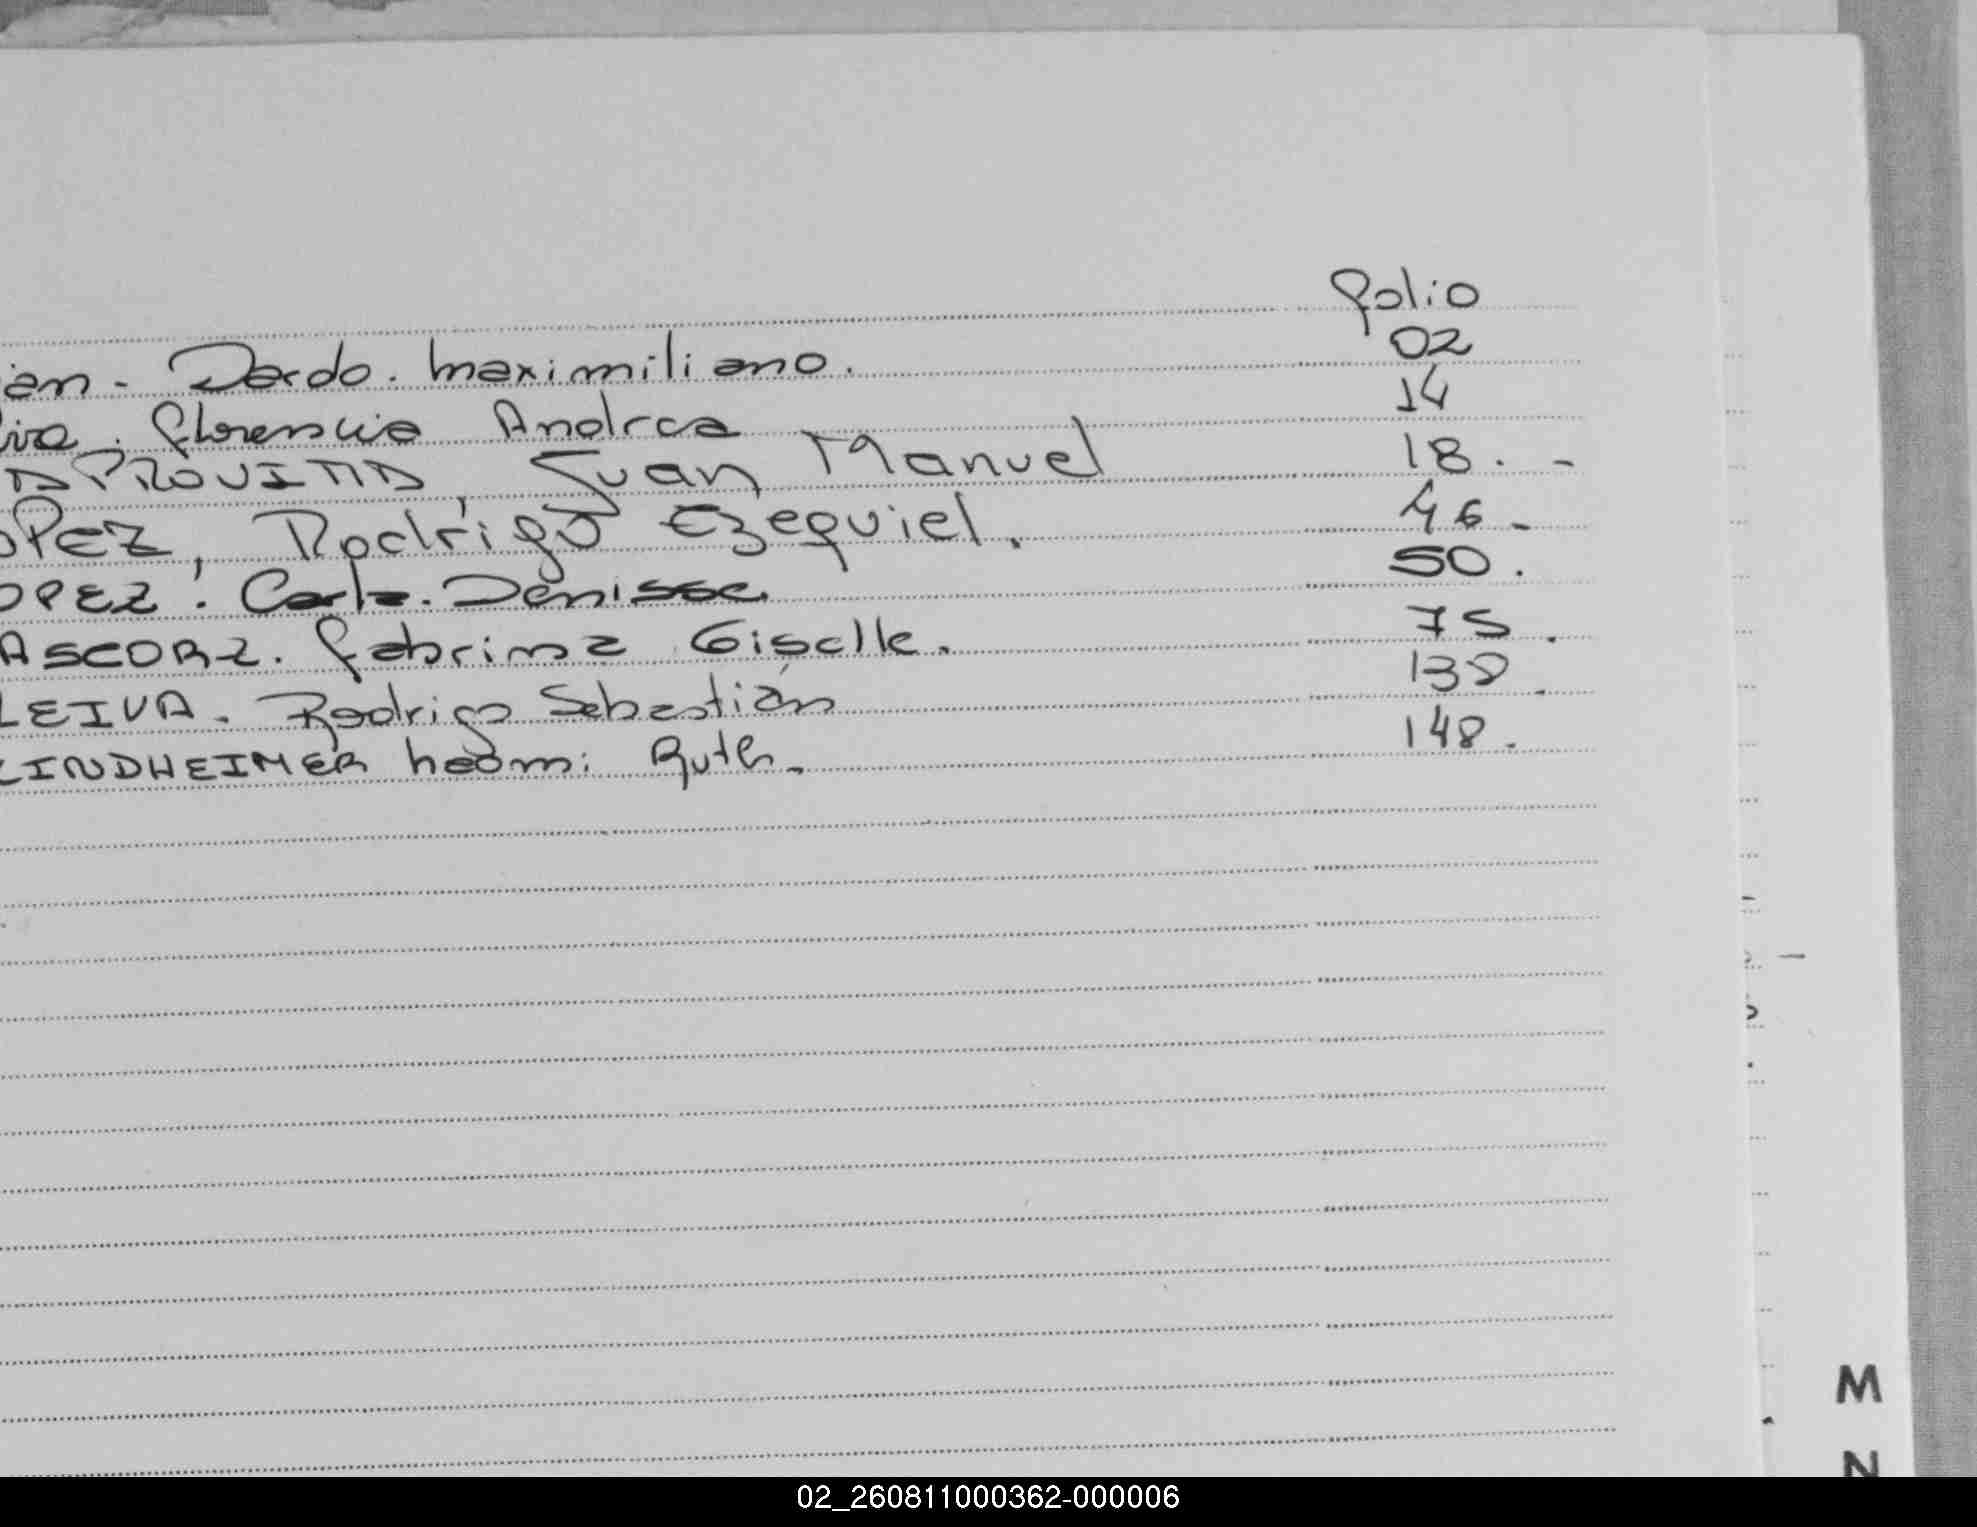 folio
ian - Dardo. Maximiliano. 02
iva. Florencia Andrea 14
APROVITTA, Juan Manuel 18. -
OPEZ, Rodrigo Ezequiel. 46 -
OPEZ. Carla. Denisse 50.
ASCORZ. Fabrina Giselle. 75.
LEIVA. Rodrigo Sebastián 138.
LINDHEIMER Noomi Ruth. 148.
M
N
02_260811000362-000006